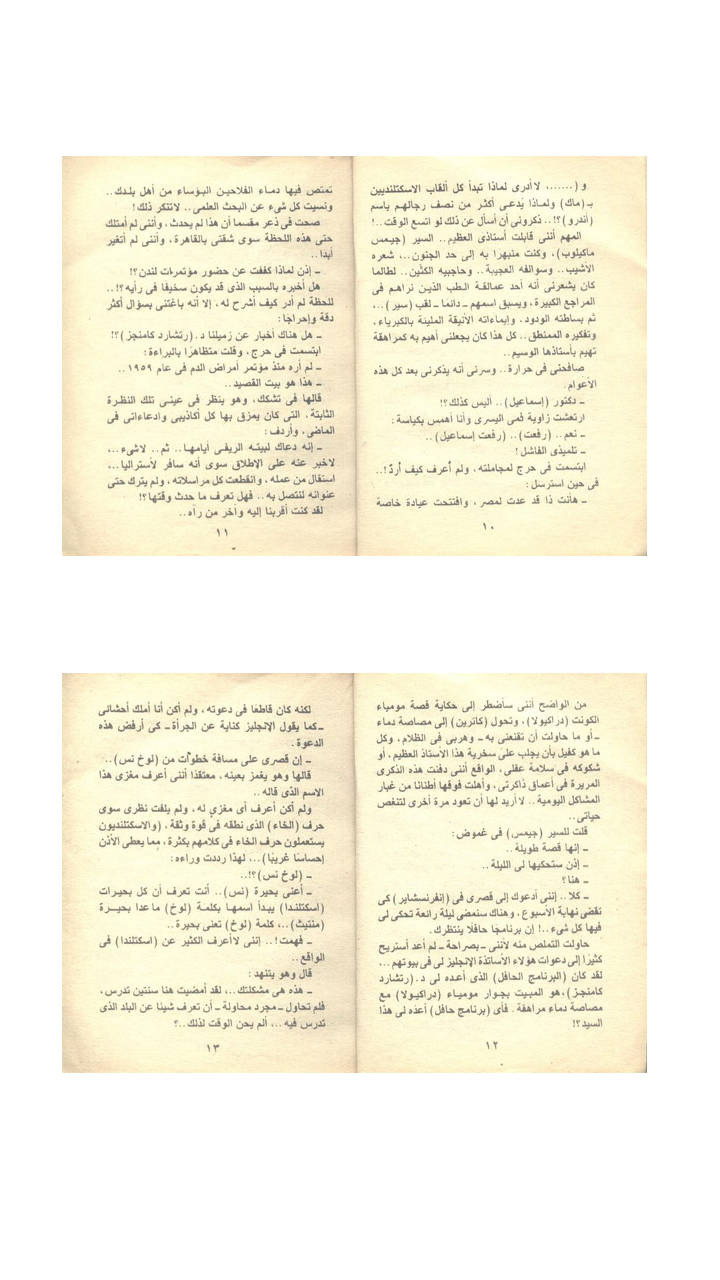 و (......، لا أدرى لماذا تبدأ كل ألقاب الاسكتلنديين
بـ (ماك) ولماذا يُدعى أكثر من نصف رجالهم باسم
(أندرو) ؟!.. ذكرونى أن أسأل عن ذلك لو اتسع الوقت ..!
المهم أننى قابلت أستاذى العظيم.. السير (جيمس
ماكيلوب)، وكنت منبهرا به إلى حد الجنون ..، شعره
الأشيب.. وسوالفه العجيبة.. وحاجبيه الكثين.. لطالما
كان يشعرنى أنه أحد عمالقة الطب الذين نراهم فى
المراجع الكبيرة، ويسبق اسمهم ـ دائما ـ لقب (سير) ..،
ثم بساطته الودود، وإيماءاته الأنيقة المليئة بالكبرياء،
وتفكيره الممنطق.. كل هذا كان يجعلنى أهيم به كمراهقة
تهيم بأستاذها الوسيم ..
صافحنى فى حرارة.. وسرنى أنه يذكرنى بعد كل هذه
الأعوام.
ـ دكتور (إسماعيل).. أليس كذلك ؟!
ارتعشت زاوية فمى اليسرى وأنا أهمس بكياسة :
ـ نعم.. (رفعت).. (رفعت إسماعيل) ..
ـ تلميذى الفاشل !
ابتسمت فى حرج لمجاملته، ولم أعرف كيف أرد !..
فى حين استرسل :
ـ هأنت ذا قد عدت لمصر، وافتتحت عيادة خاصة
١٠
تمتص فيها دماء الفلاحين البؤساء من أهل بلدك ..
ونسيت كل شىء عن البحث العلمى.. لا تنكر ذلك !
صحت فى ذعر مقسما أن هذا لم يحدث، وأننى لم أمتلك
حتى هذه اللحظة سوى شقتى بالقاهرة، وأننى لم أتغير
أبدا ..
ـ إذن لماذا كففت عن حضور مؤتمرات لندن ؟!
هل أخبره بالسبب الذى قد يكون سخيفا فى رأيه ؟!..
للحظة لم أدر كيف أشرح له، إلا أنه باغتنى بسؤال أكثر
دقة وإحراجا :
ـ هل هناك أخبار عن زميلنا د. (رتشارد كامنجز) ؟!
ابتسمت فى حرج، وقلت متظاهرا بالبراءة :
ـ لم أره منذ مؤتمر أمراض الدم فى عام ١٩٥٩ ..
ـ هذا هو بيت القصيد ..
قالها فى تشكك، وهو ينظر فى عينى تلك النظرة
الثابتة، التى كان يمزق بها كل أكاذيبى وادعاءاتى فى
الماضى، وأردف :
ـ إنه دعاك لبيته الريفى أيامها.. ثم.. لا شىء ..،
لا خبر عنه على الإطلاق سوى أنه سافر لأستراليا ..،
استقال من عمله، وانقطعت كل مراسلاته، ولم يترك حتى
عنوانه لنتصل به.. فهل تعرف ما حدث وقتها ؟!
لقد كنت أقربنا إليه وآخر من رآه ..
١١
من الواضح أننى سأضطر إلى حكاية قصة مومياء
الكونت (دراكيولا)، وتحول (كاترين) إلى مصاصة دماء
ـ أو ما حاولت أن تقنعنى به ـ وهربى فى الظلام، وكل
ما هو كفيل بأن يجلب على سخرية هذا الأستاذ العظيم، أو
شكوكه فى سلامة عقلى، الواقع أننى دفنت هذه الذكرى
المريرة فى أعماق ذاكرتى، وأهلت فوقها أطنانا من غبار
المشاكل اليومية.. لا أريد لها أن تعود مرة أخرى لتنغص
حياتى ..
قلت للسير (جيمس) فى غموض :
ـ إنها قصة طويلة ..
ـ إذن ستحكيها لى الليلة ..
ـ هنا ؟
ـ كلا.. إننى أدعوك إلى قصرى فى (إنفرنسشاير) كى
تقضى نهاية الأسبوع، وهناك سنمضى ليلة رائعة تحكى لى
فيها كل شىء ..! إن برنامجا حافلا ينتظرك .
حاولت التملص منه لأننى ـ بصراحة ـ لم أعد أستريح
كثيرا إلى دعوات هؤلاء الأساتذة الإنجليز لى فى بيوتهم ..،
لقد كان (البرنامج الحافل) الذى أعده لى د. (رتشارد
كامنجز)، هو المبيت بجوار مومياء (دراكيولا) مع
مصاصة دماء مراهقة. فأى (برنامج حافل) أعده لى هذا
السيد ؟!
١٢
لكنه كان قاطعا فى دعوته، ولم أكن أنا أملك أحشائى
ـ كما يقول الإنجليز كناية عن الجرأة ـ كى أرفض هذه
الدعوة .
ـ إن قصرى على مسافة خطوات من (لوخ نس) ..
قالها وهو يغمز بعينه، معتقدا أننى أعرف مغزى هذا
الاسم الذى قاله ..
ولم أكن أعرف أى مغزى له، ولم يلفت نظرى سوى
حرف (الخاء) الذى نطقه فى قوة وثقة، (والاسكتلنديون
يستعملون حرف الخاء فى كلامهم بكثرة، مما يعطى الأذن
إحساسا غريبا) ..، لهذا رددت وراءه :
ـ (لوخ نس) ؟!..
ـ أعنى بحيرة (نس).. أنت تعرف أن كل بحيرات
(اسكتلندا) يبدأ اسمها بكلمة (لوخ) ماعدا بحيرة
(منتيث) ..، كلمة (لوخ) تعنى بحيرة ..
ـ فهمت !.. إننى لا أعرف الكثير عن (اسكتلندا) فى
الواقع ..
قال وهو يتنهد :
ـ هذه هى مشكلتك ..، لقد أمضيت هنا سنتين تدرس،
فلم تحاول ـ مجرد محاولة ـ أن تعرف شيئا عن البلد الذى
تدرس فيه ..، ألم يحن الوقت لذلك ..؟
١٣